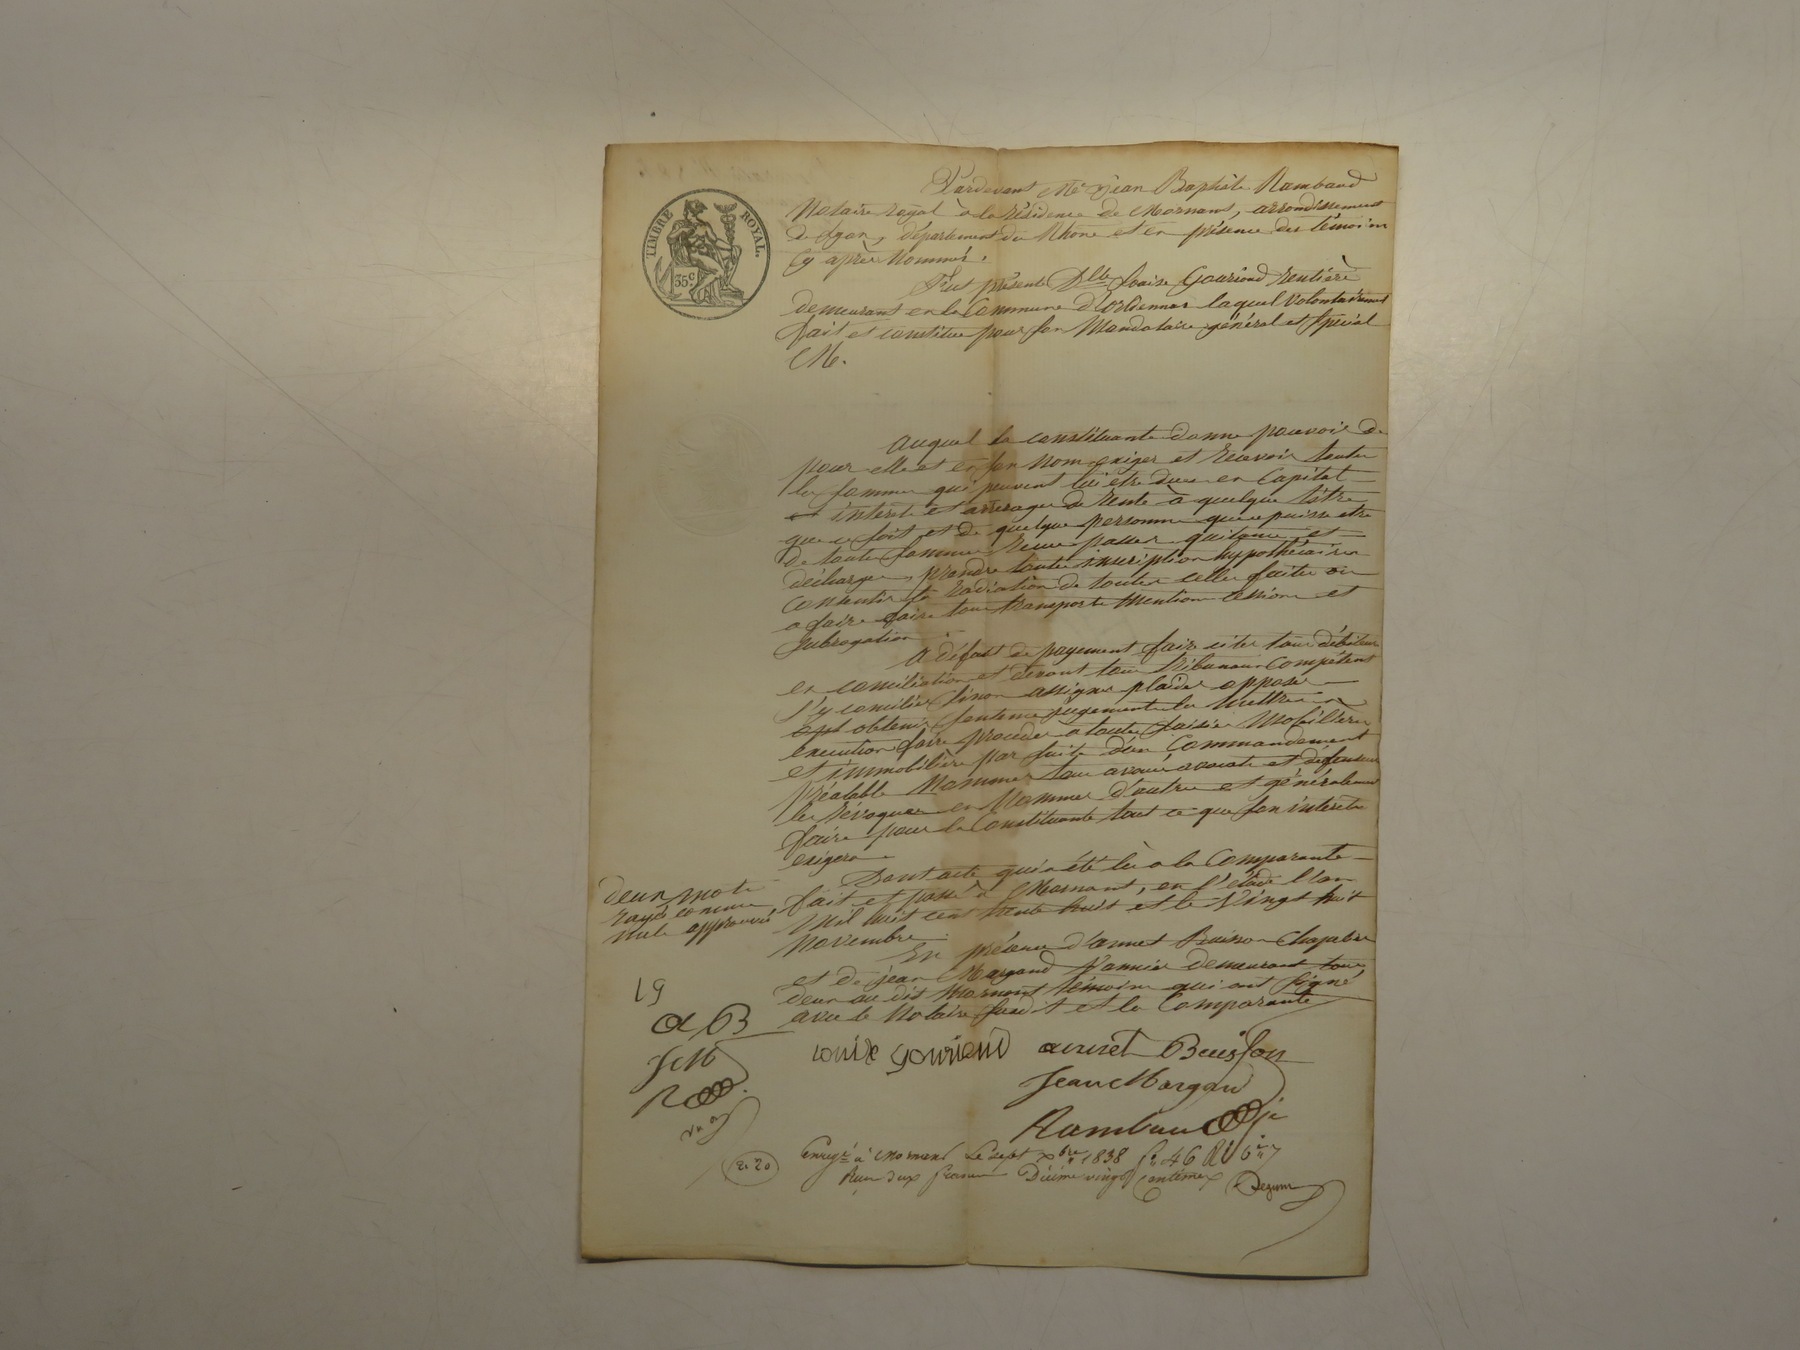 TIMBRE ROYAL.
35c
Pardevant Me Jean Baptiste Rambaud
Notaire royal à la résidence de Mornant, arrondissement
de Lyon, département du Rhône et en présence des témoins
Cy après Nommés.
Fut présente Dlle Louise Gouriond rentière
demeurant en la Commune d' laquel volontairement
fait et constitue pour son Mandataire général et Spécial
Me.
auquel la constituante donne pouvoir de
pour elle et en son Nom exiger et recevoir toutes
les sommes qui peuvent lui être dues en Capital
intérêts et arrérages de rente à quelque titre
que ce soit et de quelque personne que ce puisse être
de toutes sommes reçues passer quitance et
décharges, prendre toutes inscription hypothécaires
consentir la radiation de toutes celles faites ou
a faire faire tous transports Mention cession et
subrogation.
A défaut de payement faire citer tous débiteurs
en conciliation et devant tous Tribunaux Compétents
s'y concilier sinon assigner plaider opposer
obtenir sentence jugements les Mettre a
exécution faire procéder a toutes saisies Mobilières
et immobilière par suite d'un Commandement
préalable Nommer tous avoués avocats et défenseurs
les révoquer en Nommer d'autres et généralement
faire pour la Constituante tout ce que son intérêts
exigera
Dont acte qui a été lu a la Comparante
fait et passé à Mornant, en l'étude l'an
Mil huit cent trente huit et le Vingt huit
Novembre.
En présence d'annet Buisson Chapelier
et de Jean Margand Vannier demeurant tous
deux au dit Mornant témoins qui ont signé
avec le Notaire susdit et la Comparante
deux mots
rayés comme
nuls approuvés
LG
a B
JcM
R
Louise Gouriond annet Buisson
Jean Margan
Rambaud
2. 20
Enregé à Mornant le sept Xbre 1838 fo 46 Ro
Reçu deux francs Décime vingt Centimes